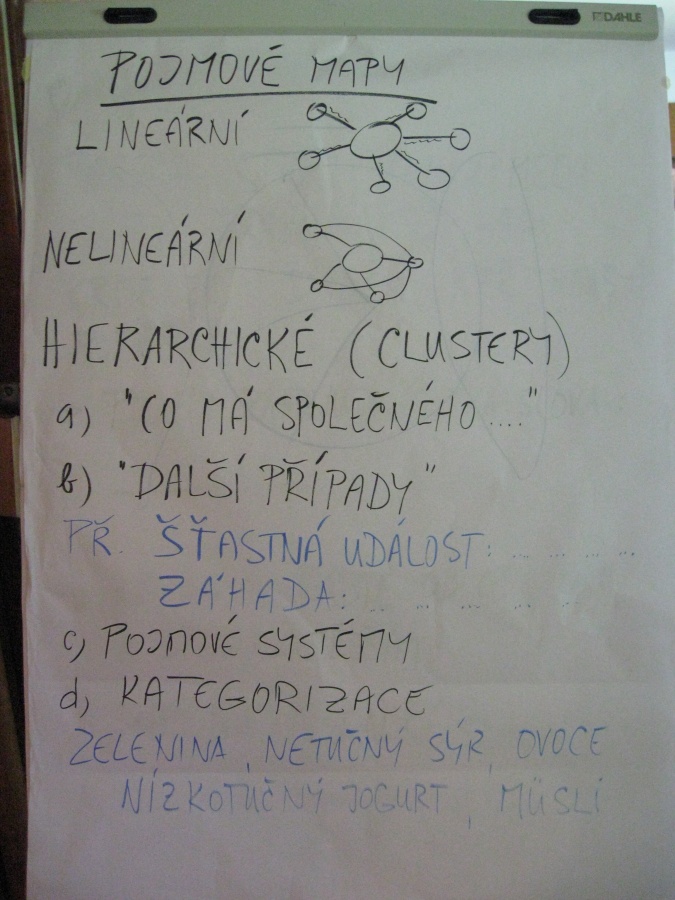 DAHLE
POJMOVÉ MAPY
LINEÁRNÍ
NELINEÁRNÍ
HIERARCHICKÉ (CLUSTERY)
a) "CO MÁ SPOLEČNÉHO ...."
b) "DALŠÍ PŘÍPADY"
PŘ. ŠŤASTNÁ UDÁLOST: ... ... ... ...
ZÁHADA: ... ... ... ... ...
c) POJMOVÉ SYSTÉMY
d) KATEGORIZACE
ZELENINA, NETUČNÝ SÝR, OVOCE
NÍZKOTUČNÝ JOGURT, MÜSLI